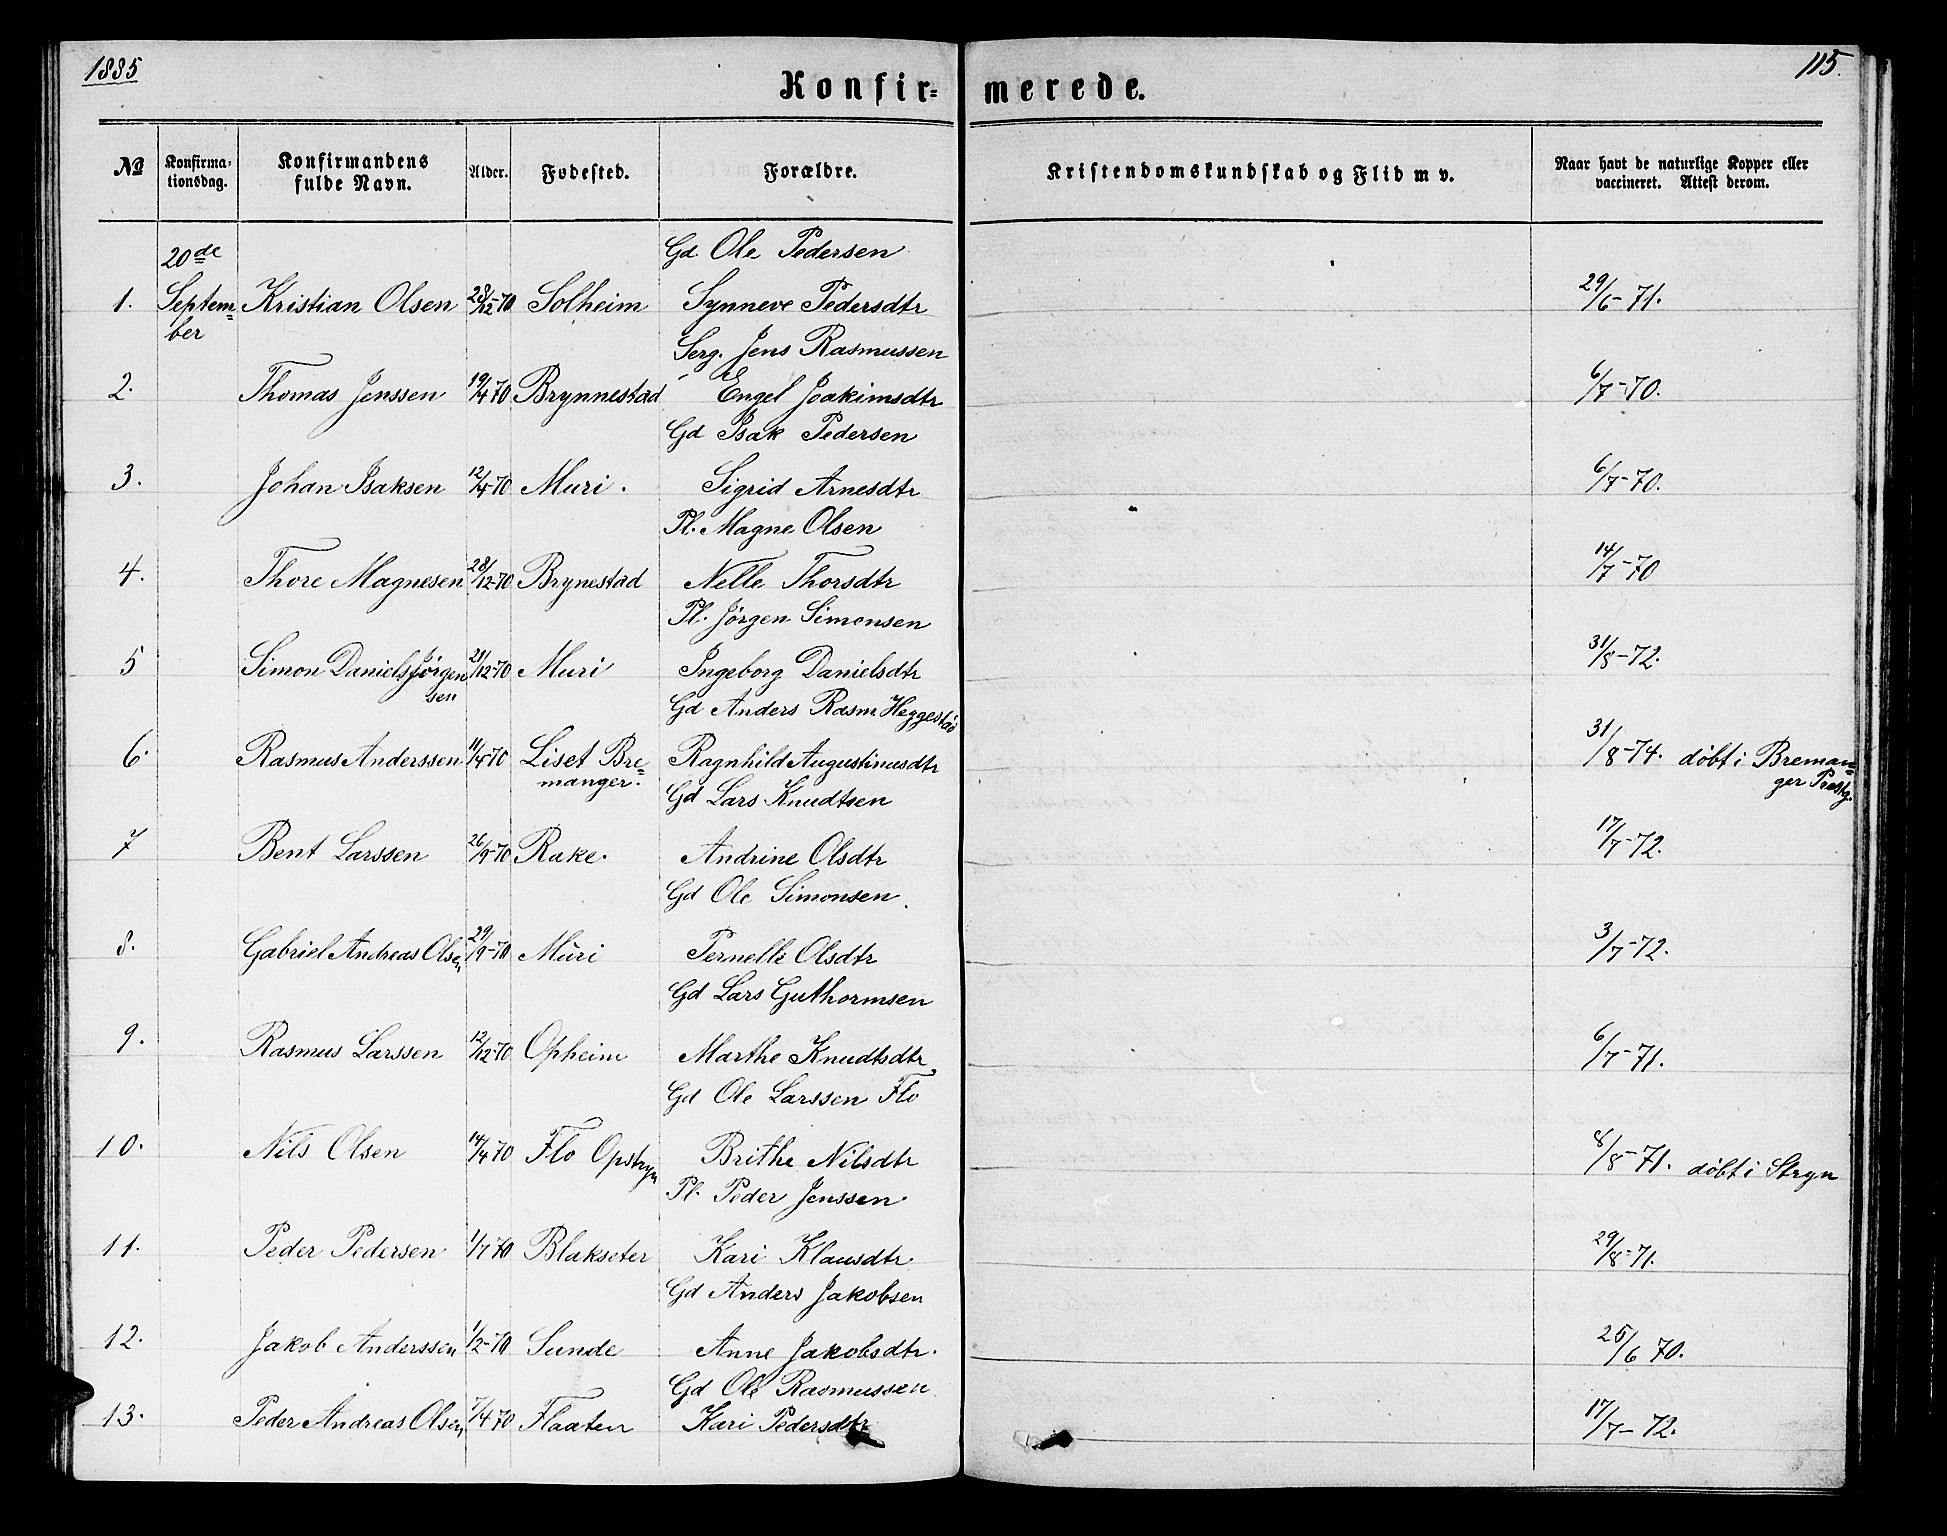 1885
115.
Konfir=
merede.
No
Konfirma-
tionsdag.
Konfirmandens
fulde Navn.
Alder.
Fødested.
Forældre.
Kristendomskundskab og Flid m v.
Naar havt de naturlige Kopper eller
vaccineret. Attest derom.
20de
Gd. Ole Pedersen
1. Septem= Kristian Olsen 28/12-70 Solheim Synneve Pedersdtr 29/6-71.
ber
Serg. Jens Rasmussen
2. Thomas Jenssen 19/4 70 Brynnestad Engel Joakimsdtr 6/7-70.
Gd Isak Pedersen
3. Johan Isaksen 12/4-70 Muri. Sigrid Arnesdtr 6/7-70.
Pl. Magne Olsen
4. Thore Magnesen 28/12-70 Brynestad Nelle Thorsdtr 14/7-70
Pl. Jörgen Simonsen
5 Simon Daniels Jörgen 12-70 Muri Ingeborg Danielsdtr 31/8-72.
sen
Gd Anders Rasm Heggestad
6. Rasmus Anderssen 11/4-70 Liset Bre= Ragnhild Augustinusdtr 31/8-74. döbt i Breman=
manger. ger Prestg.
Gd Lars Knudtsen
7 Bent Larssen 26/9-70 Rake. Andrine Olsdtr 17/7-72.
Gd Ole Simonsen.
8. Gabriel Andreas Olsen 29/9-70 Muri Pernelle Olsdtr 3/7-72.
Gd Lars Guthormsen
9. Rasmus Larssen 12/12-70 Opheim Marthe Knudtsdtr 6/7-71.
Gd Ole Larssen Flo
10. Nils Olsen 14/4 70 Flo Opstryn Brithe Nilsdtr 8/8-71. döbt i Stryn
Pl. Peder Jenssen.
11. Peder Pedersen 1/7 70 Blakseter Kari Klausdtr. 29/8-71.
Gd Anders Jakobsen
12. Jakob Anderssen 1/2-70 Sunde Anne Jakobsdtr. 25/6 70.
Gd Ole Rasmussen
13. Peder Andreas Olsen 7/4 70 Flaaten Kari Pedersdtr 17/7-72.